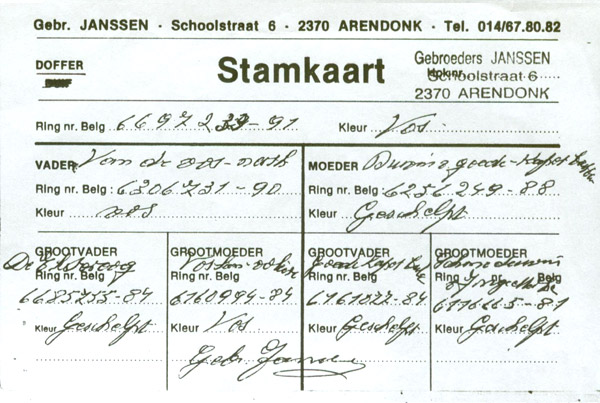 Gebr. JANSSEN - Schoolstraat 6 - 2370 ARENDONK - Tel. 014/67.80.82
DOFFER
Stamkaart
Gebroeders JANSSEN
Schoolstraat 6
2370 ARENDONK
Ring nr. Belg 6697233-91 Kleur Vos
VADER Van de vos-
Ring nr. Belg 6306731-90
Kleur vos
MOEDER goede
Ring nr. Belg : 6256249-88
Kleur Geschelpt
GROOTVADER
Ring nr. Belg
6685255-84
Kleur Geschelpt
GROOTMOEDER
Ring nr. Belg
6160994-84
Kleur Vos
GROOTVADER
Ring nr. Belg
6161022-84
Kleur Geschelpt
GROOTMOEDER
Ring nr. Belg
-81
Kleur Geschelpt
Gebr. Janssen